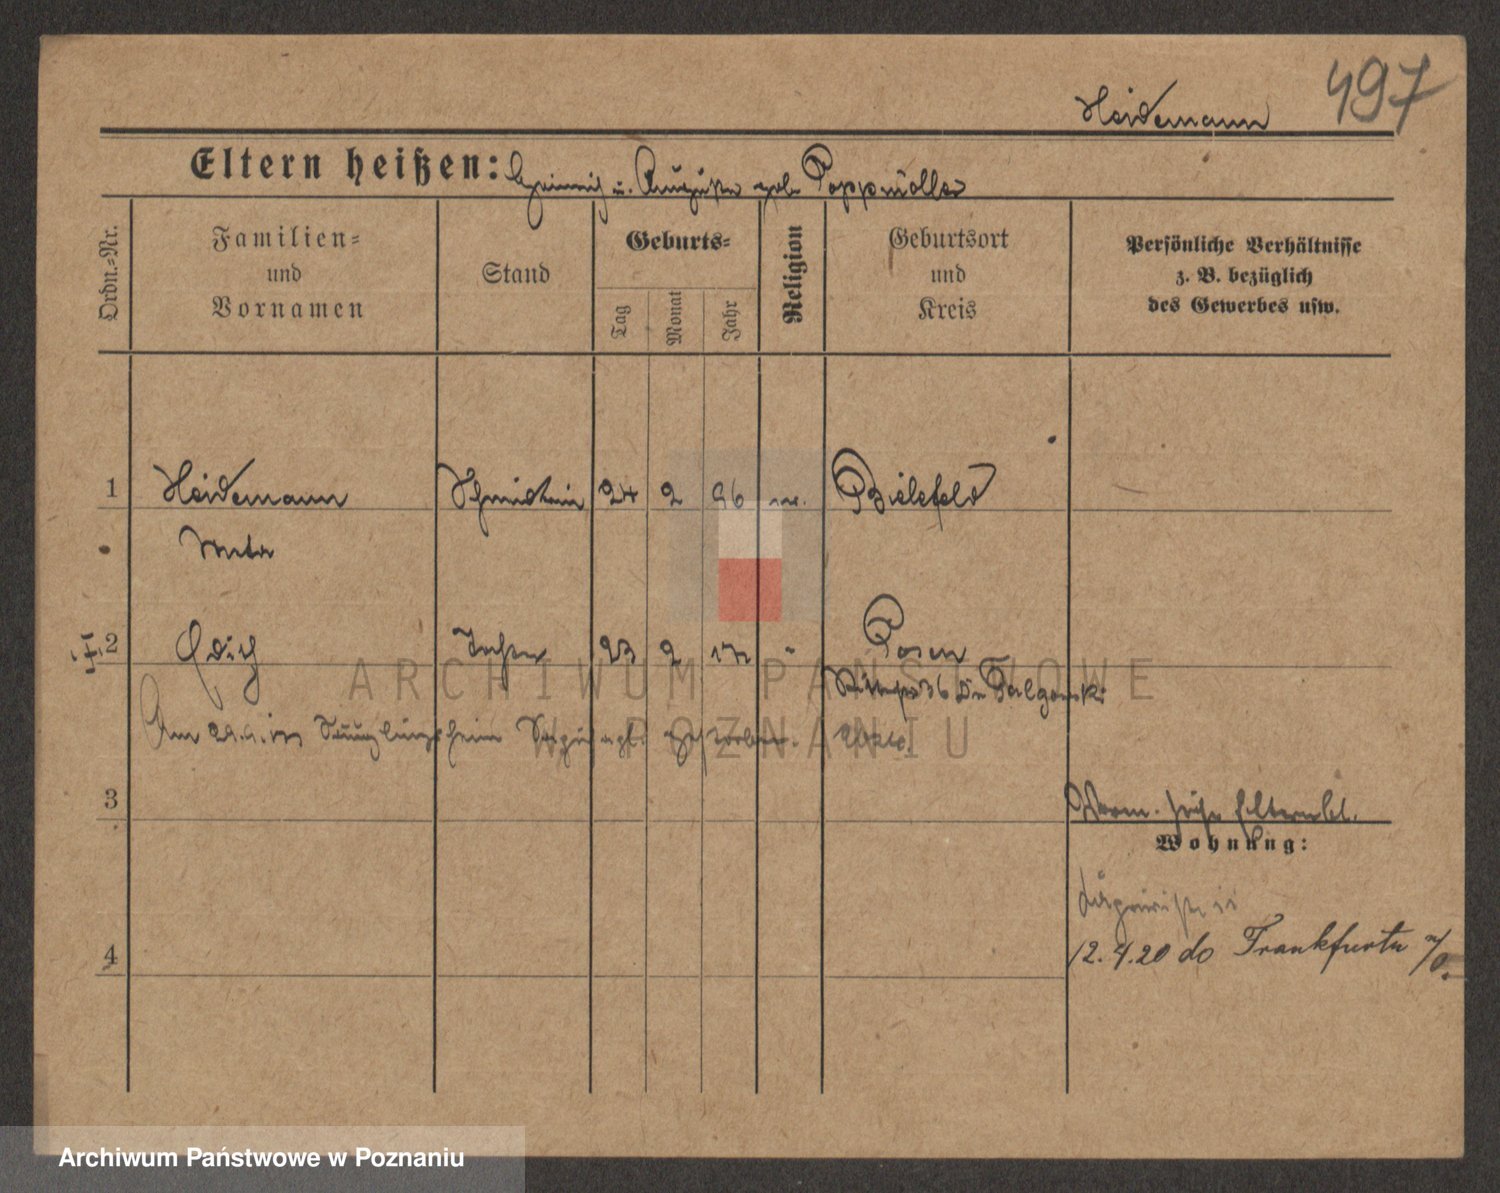 497
Heidemann
Eltern heißen: Heinrich u. Auguste geb. Poppmöller
Ordn.-Nr.
Familien-
und
Vornamen
Stand
Geburts-
Tag
Monat
Jahr
Religion
Geburtsort
und
Kreis
Persönliche Verhältnisse
z. B. bezüglich
des Gewerbes usw.
1 Heidemann 24 2 96 ev. Bielefeld
Meta
2 Edith Tochter 23 2 17 " Posen
36
Am Säuglingsheim gestorben.
3
Wohnung:
4
12.4.20 do Frankfurtu n/O.
ARCHIWUM PAŃSTWOWE
W POZNANIU
Archiwum Państwowe w Poznaniu